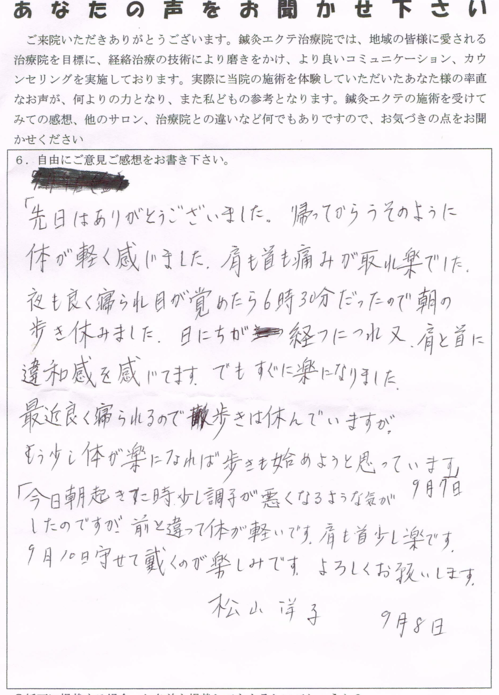 あなたの声をお聞かせ下さい
ご来院いただきありがとうございます。鍼灸エクテ治療院では、地域の皆様に愛される
治療院を目標に、経絡治療の技術により磨きをかけ、より良いコミュニケーション、カウ
ンセリングを実施しております。実際に当院の施術を体験していただいたあなた様の率直
なお声が、何よりの力となり、また私どもの参考となります。鍼灸エクテの施術を受けて
みての感想、他のサロン、治療院との違いなど何でもありですので、お気づきの点をお聞
かせください
６．自由にご意見ご感想をお書き下さい。
「先日はありがとうございました。帰ってからうそのように
体が軽く感じました。肩も首も痛みが取れ楽でした。
夜も良く寝られ目が覚めたら6時30分だったので朝の
歩き休みました。日にちが経つにつれ又、肩と首に
違和感を感じてます。でもすぐに楽になりました。
最近良く寝られるので歩きは休んでいますが、
もう少し体が楽になれば歩きも始めようと思っています」
9月7日
「今日朝起きた時少し調子が悪くなるような気が
したのですが、前と違って体が軽いです。肩も首少し楽です。
9月10日 せて戴くのが楽しみです。よろしくお願いします。
松山洋子 9月8日